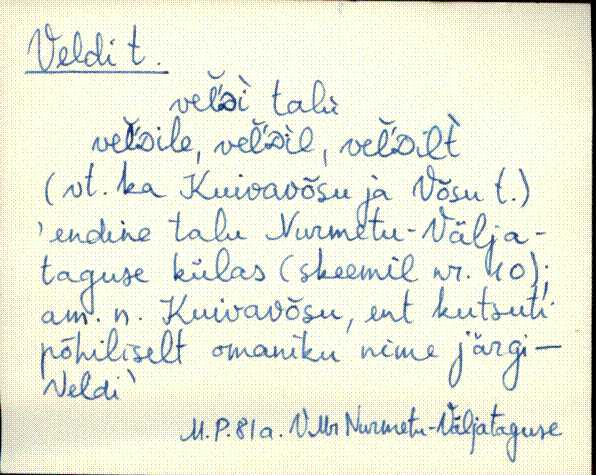 Veldi t.
vel̆'ᴅì talù
vel̆'ᴅile, vel̆'ᴅìl, vel̆'ᴅilt̀
(vt. ka Kuivavõsu ja Võsu t.)
'endine talu Nurmetu-Välja-
taguse külas (skeemil nr. 10);
am. n. Kuivavõsu, ent kutsuti
põhiliselt omaniku nime järgi—
Veldi'
M.P.81a. VMr Nurmetu-Väljataguse